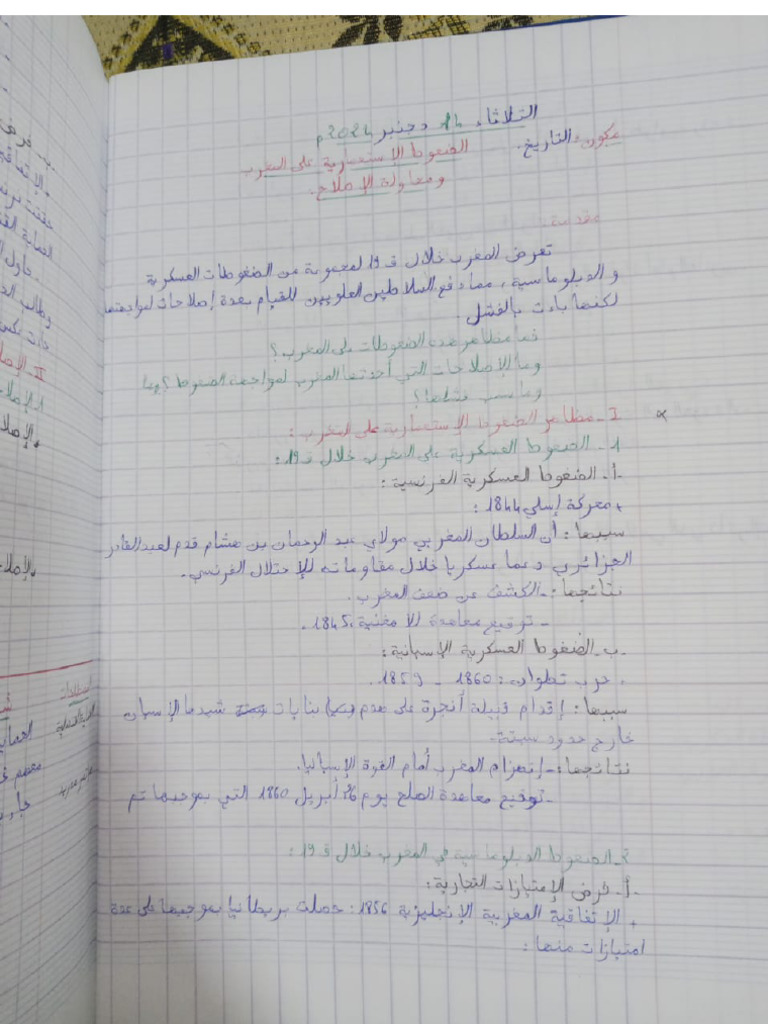 الثلاثاء 24 دجنبر 2024م
مكون: التاريخ.
الضغوط الإستعمارية على المغرب
ومحاولة الإصلاح.
مقدمة:
تعرض المغرب خلال ق 19 لمجموعة من الضغوطات العسكرية
والدبلوماسية، مما دفع السلاطين العلويين للقيام بعدة إصلاحات لمواجهتها
لكنها باءت بالفشل.
فما مظاهر هذه الضغوطات على المغرب؟
وما الإصلاحات التي أحدثها المغرب لمواجهة الضغوط؟
وما سبب فشلها؟
I - مظاهر الضغوط الإستعمارية على المغرب:
1 - الضغوط العسكرية على المغرب خلال ق 19:
أ - الضغوط العسكرية الفرنسية:
+ معركة إسلي 1844:
سببها: أن السلطان المغربي مولاي عبد الرحمان بن هشام قدم لعبد القادر
الجزائري دعما عسكريا خلال مقاوماته للإحتلال الفرنسي.
نتائجها: - الكشف عن ضعف المغرب.
- توقيع معاهدة للا مغنية 1845.
ب - الضغوط العسكرية الإسبانية:
. حرب تطوان: 1860 - 1859.
سببها: إقدام قبيلة أنجرة على هدم بنايات شيدها الإسبان
خارج حدود سبتة.
نتائجها: - إنهزام المغرب أمام القوة الإسبانيا.
- توقيع معاهدة الصلح يوم 26 أبريل 1860 التي بموجبها تم
2 - الضغوط الدبلوماسية في المغرب خلال ق 19:
أ - فرض الإمتيازات التجارية:
+ الإتفاقية المغربية الإنجليزية 1856: حصلت بريطانيا بموجبها على عدة
امتيازات منها: